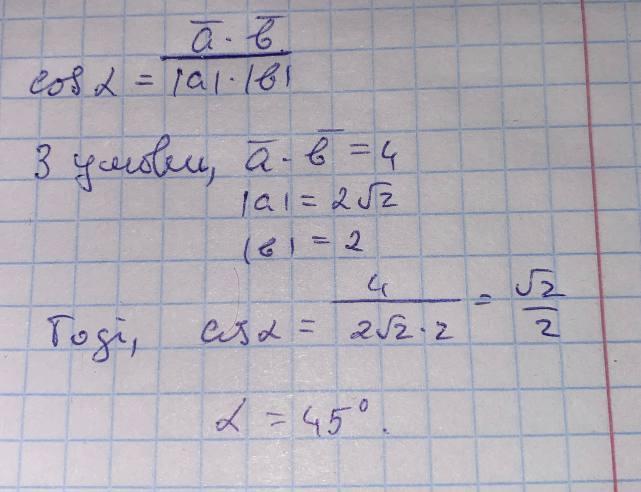 cos α = a̅ · b̅ / |a| · |b|
З умови, a̅ · b̅ = 4
|a| = 2√2
|b| = 2
Тоді, cos α = 4 / 2√2 · 2 = √2 / 2
α = 45°.